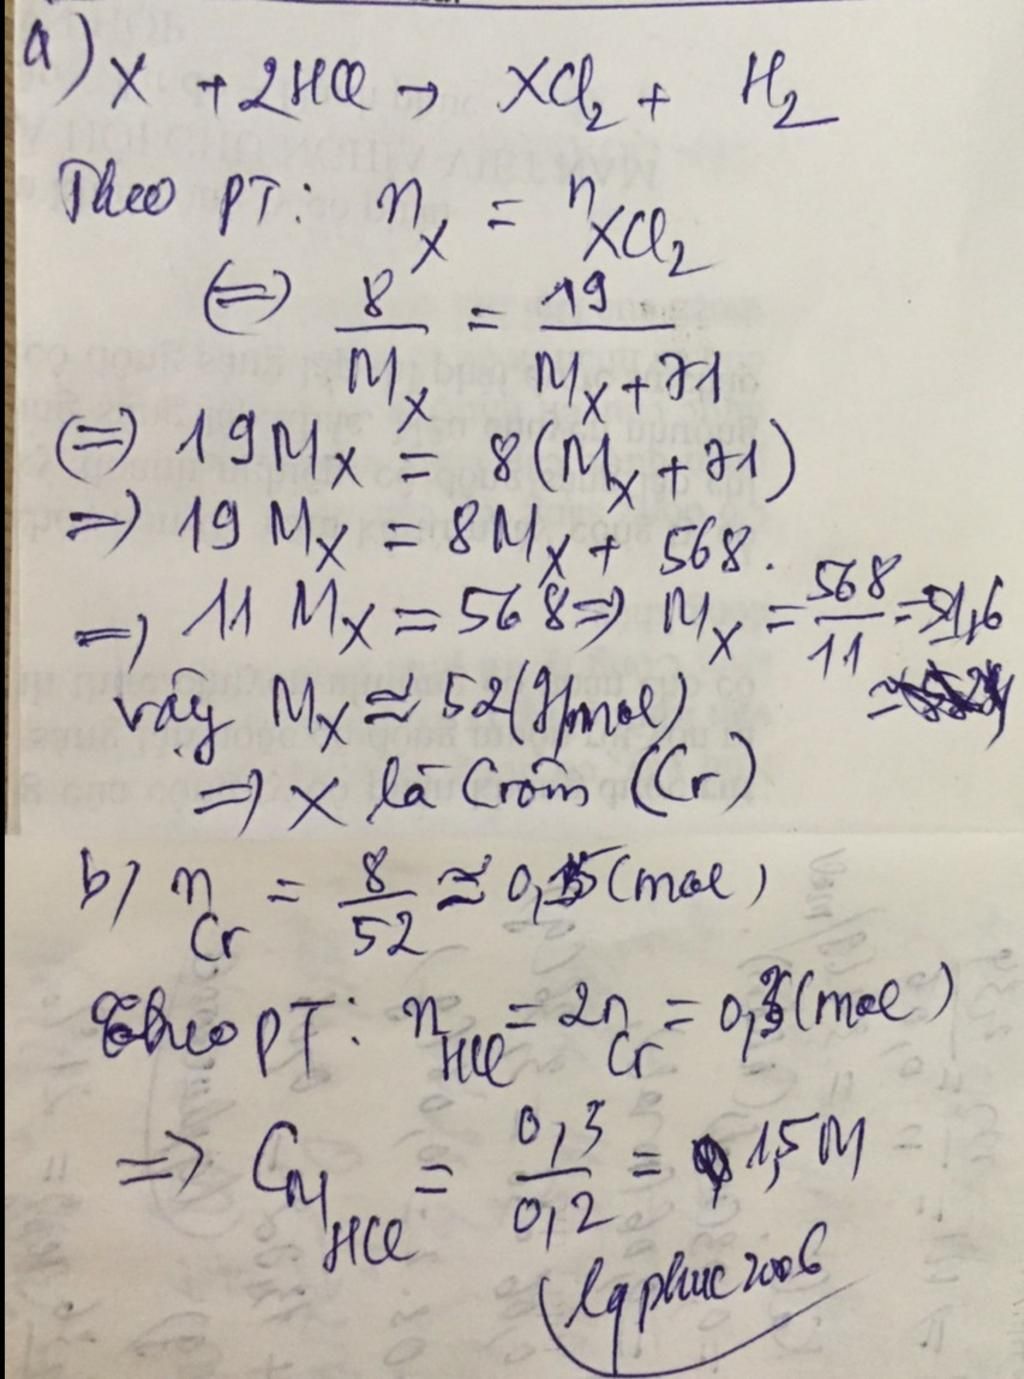 a) X + 2HCl → XCl₂ + H₂
Theo PT: n_X = n_XCl₂
(=) 8/M_X = 19/(M_X + 71)
(=) 19M_X = 8(M_X + 71)
=) 19 M_X = 8M_X + 568.
=) 11 M_X = 568 =) M_X = 568/11 = 51,6
vậy M_X ≈ 52 (g/mol)
=) X là Crôm (Cr)
b) n_Cr = 8/52 ≈ 0,15 (mol)
Theo PT: n_HCl = 2n_Cr = 0,3 (mol)
=> C_M_HCl = 0,3/0,2 = 1,5 M
lqphuc2006